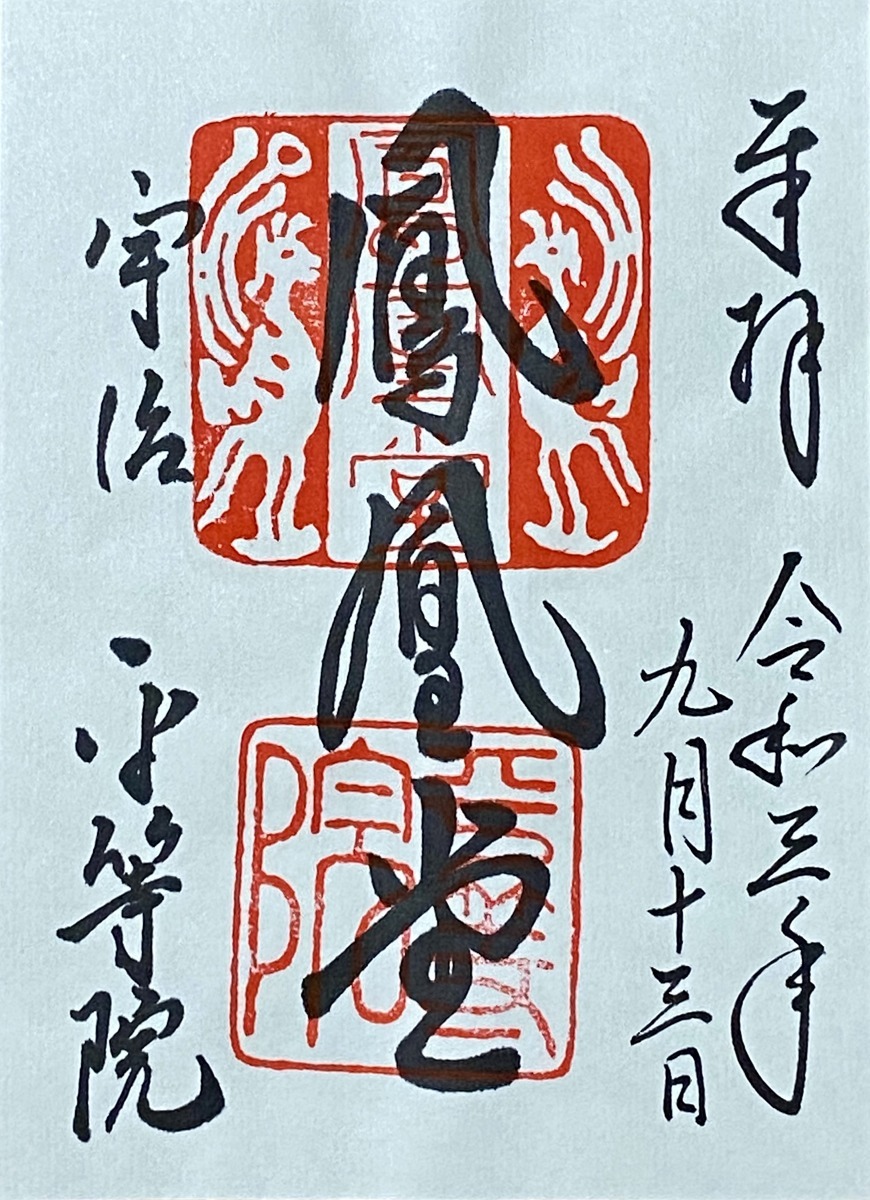 奉拝 令和三年
九月十三日
鳳凰堂
宇治 平等院
鳳凰堂
平等院